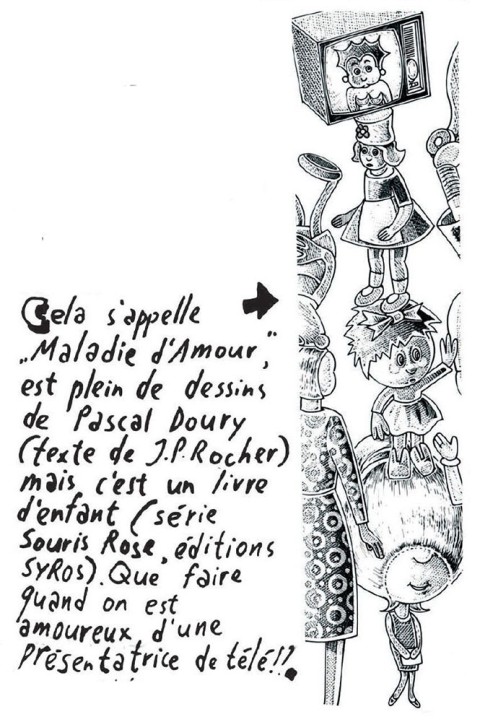 Cela s'appelle
„Maladie d'Amour",
est plein de dessins
de Pascal Doury
(texte de J.P. Rocher)
mais c'est un livre
d'enfant (série
Souris Rose, éditions
SYROS). Que faire
quand on est
amoureux d'une
présentatrice de télé!!.